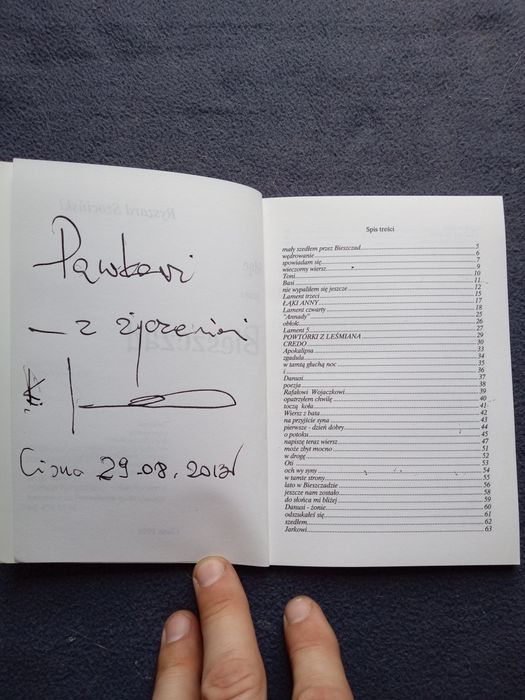 Pawłowi
– z życzeniami
Cisna 29.08.2013r
Ryszard Szociński
Bieszczad
Spis treści
mały szedłem przez Bieszczad 5
wędrowanie 6
spowiadam się 7
wieczorny wiersz 8
Toni 10
Basi 11
nie wypaliłem się jeszcze 12
Lament trzeci 15
ŁĄKI ANNY 17
Lament czwarty 18
"Annady" 25
obłok 26
Lament 5 27
POWTÓRKI Z LEŚMIANA 29
CREDO 30
Apokalipsa 33
zgadula 34
w tamtą głuchą noc 35
i 36
Danusi 37
poezja 38
Rafałowi Wojaczkowi 39
opatrzyłem chwilę 40
toczą koła 41
Wiersz z bata 42
na przyjście syna 43
pierwsze - dzień dobry 44
o potoku 45
napiszę teraz wiersz 47
może zbyt mocno 51
w drogę 52
Oti 53
och wy syny 54
w tamte strony 55
lato w Bieszczadzie 56
jeszcze nam zostało 58
do słońca mi bliżej 59
Danusi - żonie 60
odszukałeś się 61
szedłem 62
Jarkowi 63